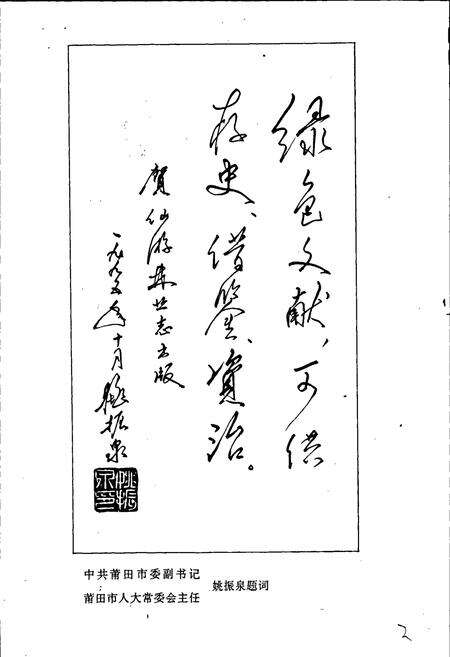 绿色文献，可供
存史、借鉴、资治。
贺仙游林业志出版
一九九五年十月姚振泉
姚振泉印
中共莆田市委副书记
莆田市人大常委会主任
姚振泉题词
2